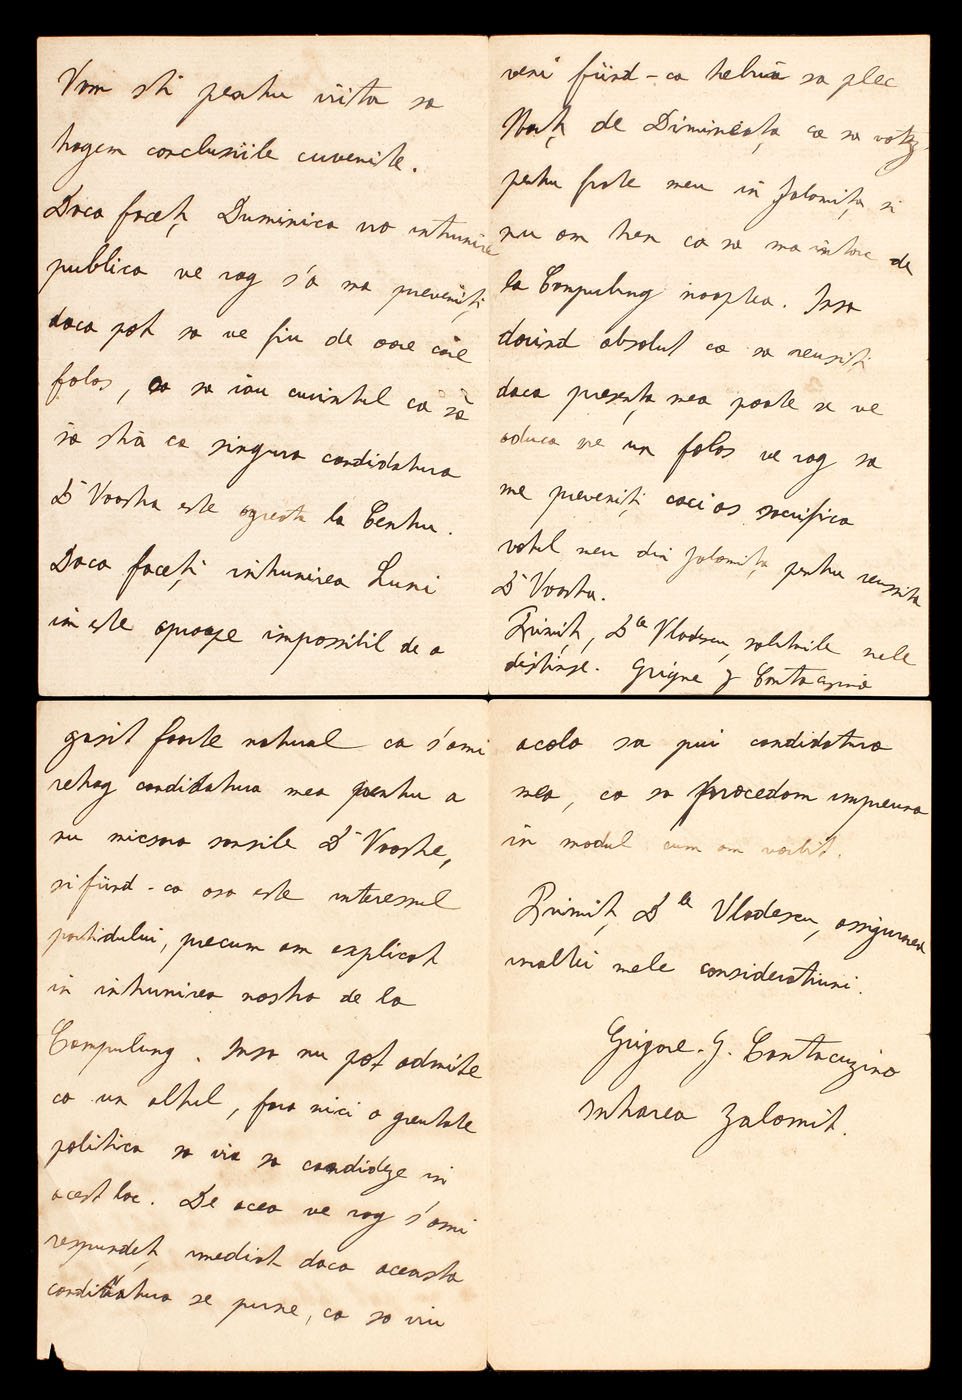 Vom sti pentru viitor sa
tragem conclusiile cuvenite.
Daca faceţi Duminica vro intrunire
publica ve rog s'a ma preveniţi
daca pot sa ve fiu de oare care
folos, ca sa iau cuvintul ca sa
sa stia ca singura candidatura
D Vostra este agreata la Centru.
Daca faceţi intrunirea Luni
imi este aproape impossibil de a
veni fiind-ca trebuia sa plec
Marţi de Dimineaţa, ca sa votez
pentru frate meu in Jalomiţa, si
nu am tren ca sa ma intorc de
la Campulung noaptea. Insa
dorind absolut ca sa reusiti
daca presenţa mea poate sa ve
aduca vre un folos ve rog sa
me preveniţi caci as sacrifica
votul meu din Jalomiţa pentru reusita
D Vostra.
Primiţi, Dle Vladescu, salutarile mele
distinse. Grigore G Cantacuzino
gasit foarte natural ca s'ami
retrag candidatura mea pentru a
nu micsora sansile D Vostre,
si fiind-ca asa este interessul
partidului, precum am explicat
in intrunirea nostra de la
Campulung. Insa nu pot admite
ca un altul, fara nici o greutate
politica sa via sa candideze in
acest loc. De acea ve rog s'ami
respundeţi imediat daca aceasta
candidatura se pune, ca sa viu
acolo sa pui candidatura
mea, ca sa procedam impreuna
in modul cum am vorbit.
Primiţi, Dle Vladescu, assigurarea
inaltei mele consideratiuni.
Grigore. G. Cantacuzino
Intrarea Zalomit.